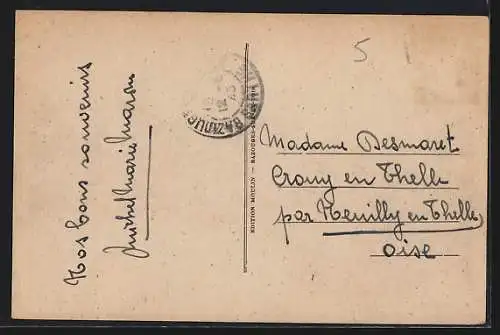 Nos bons souvenirs
Michel Marie
5
BAZOUGES
EDITION MOULIN — BAZOUGES
Madame Desmaret
Crouy en Thelle
par Neuilly en Thelle
Oise